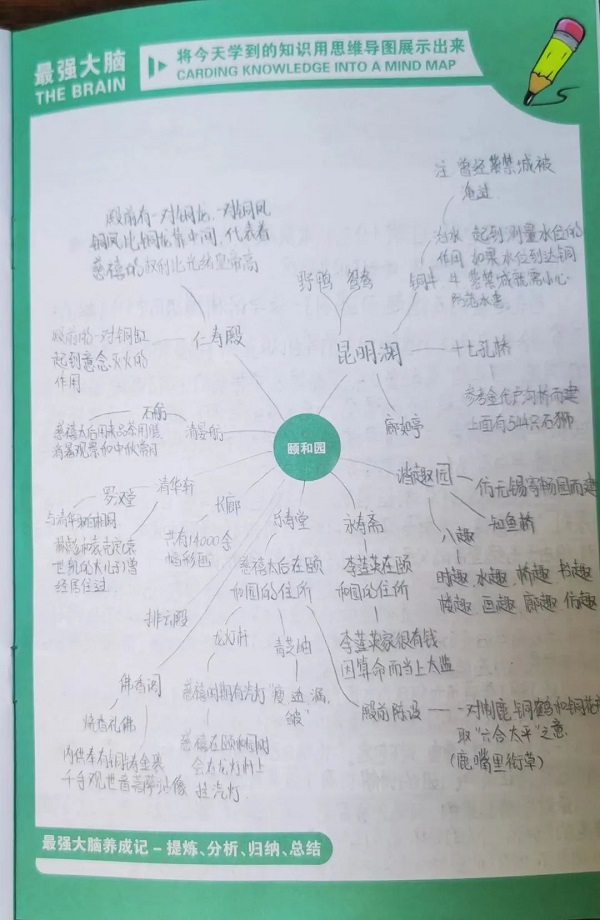 最强大脑
THE BRAIN
将今天学到的知识用思维导图展示出来
CARDING KNOWLEDGE INTO A MIND MAP
颐和园
仁寿殿
殿前有一对铜龙、一对铜凤
铜凤比铜龙靠中间,代表着
慈禧的权利比光绪皇帝高
殿前的一对铜缸
起到意念灭火的
作用
野鸭 鸳鸯
昆明湖
铜牛
治水
注 曾经紫禁城被
淹过
起到测量水位的
作用 如果水位到达铜
牛 紫禁城就需小心
十七孔桥
参考金代卢沟桥而建
上面有544只石狮
廓如亭
石舫
清晏舫
谐趣园
仿无锡寄畅园而建
知鱼桥
八趣
时趣 水趣 桥趣 书趣
楼趣 画趣 廊趣 仿趣
清华轩
罗汉堂
经居住过
长廊
共有14000余
幅彩画
乐寿堂
慈禧太后在颐
和园的住所
永寿斋
李莲英在颐
和园的住所
李莲英家很有钱
因算命而当上太监
排云殿
龙灯杆
慈禧时期有汽灯
慈禧在颐和园时
会在龙灯杆上
挂汽灯
青芝岫
瘦 透 漏
皱
殿前陈设
一对铜鹿 铜鹤和铜花
取“六合太平”之意
(鹿嘴里衔草)
佛香阁
烧香礼佛
内供奉有铜铸金装
千手观世音菩萨站像
最强大脑养成记 – 提炼、分析、归纳、总结